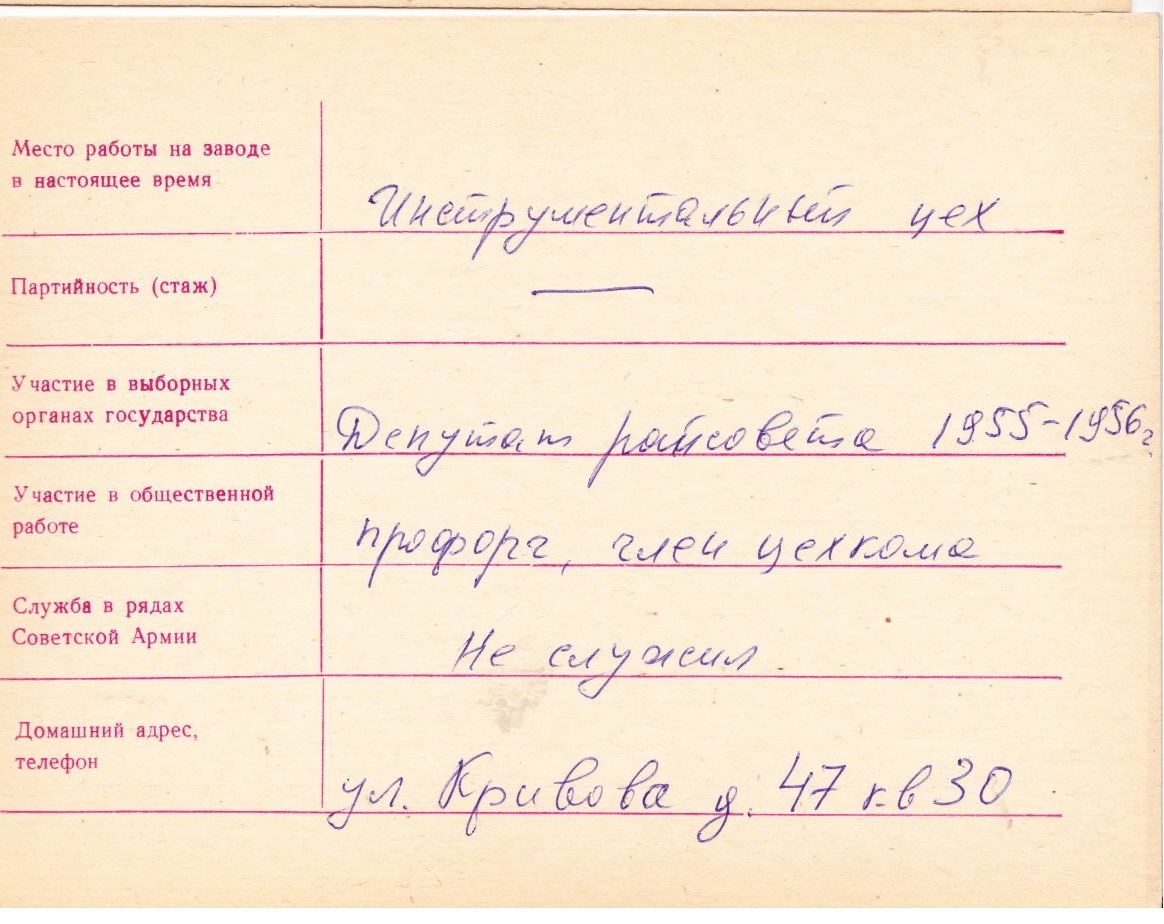 Место работы на заводе
в настоящее время
Инструментальный цех
Партийность (стаж)
—
Участие в выборных
органах государства
Депутат райсовета 1955-1956г.
Участие в общественной
работе
профорг, член цехкома
Служба в рядах
Советской Армии
Не служил
Домашний адрес,
телефон
ул. Кривова д. 47 кв 30